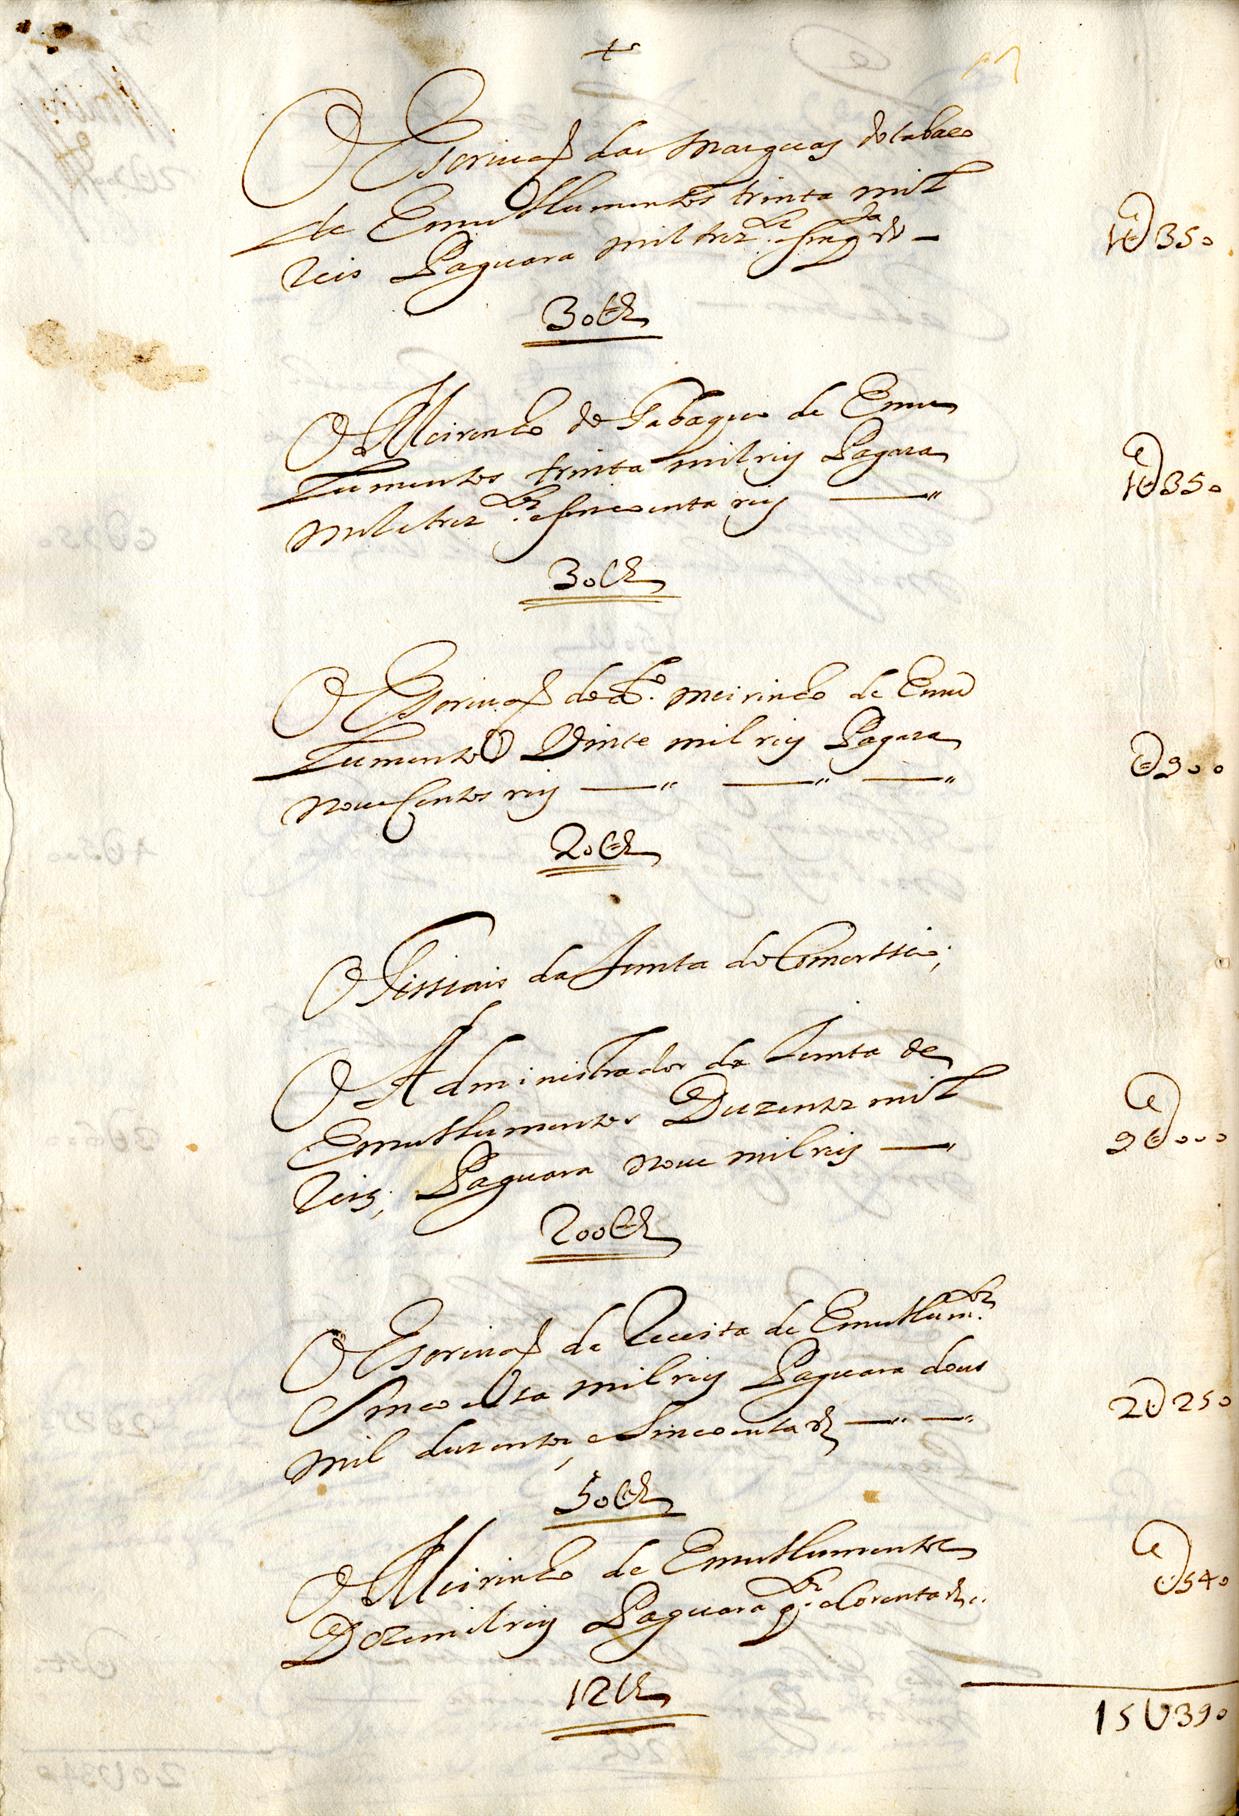 O Escrivaõ das Marguas do tabaco
de Emullumentos trinta mil
Reis Paguara mil trez.tos e sinq.ta rs — 1U350
30U rs
O Meirinho do Tabaquo de Emu
lumentos trinta mil reis Pagara
mil e trez.tos e sincoenta reis — 1U350
30U rs
O Escrivaõ do d.o meirinho de Emu
lumentos Vinte mil reis Pagara
nove Centos reis — — — U900
20U rs
Ofissiais da Junta do Comerssio;
O Administrador da Junta de
Emullumentos Duzentos mil
Reis, Paguara nove mil reis — 9U000
200U rs
O Escrivaõ da Receita de Emullum.tos
Sincoenta mil reis Paguara dous
mil duzentos, e Sincoenta rs — — 2U250
50U rs
O Meirinho de Emullumentos
Doze mil reis Paguara q.tos e Corenta rs U540
12U rs
15U390